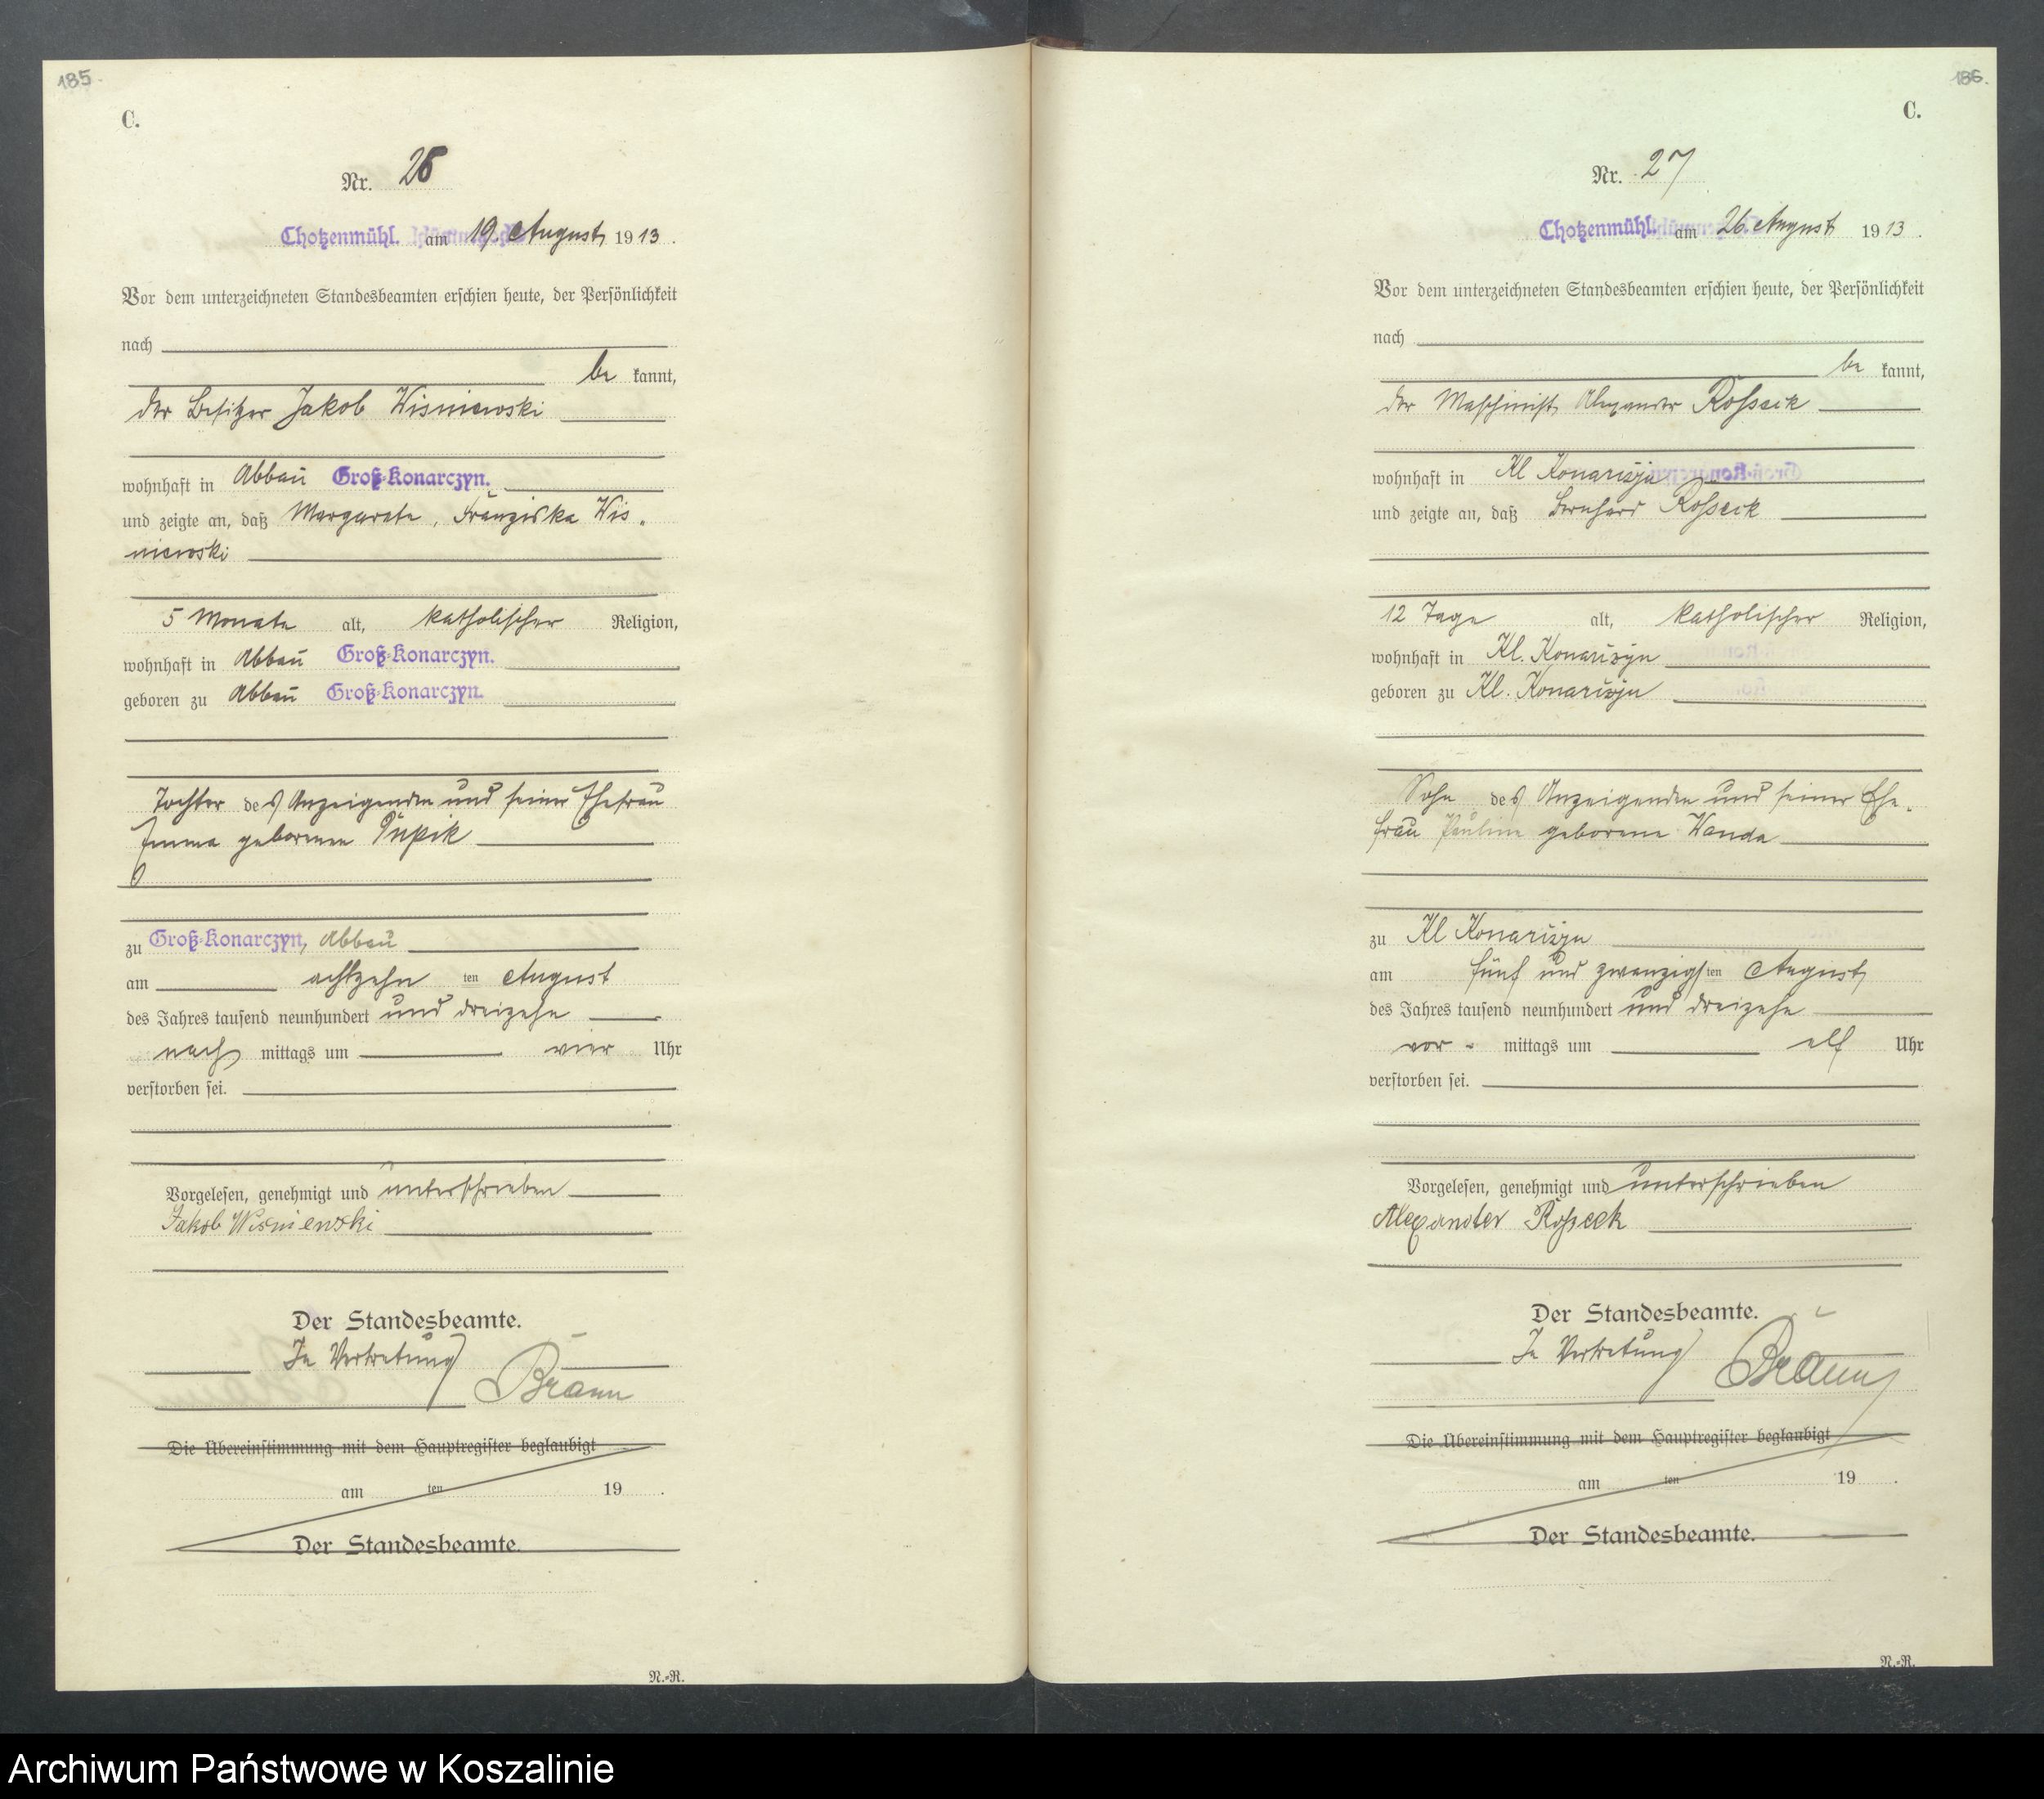 185.
C.
Nr. 26
Chotzenmühl. am 19. August 1913.
Vor dem unterzeichneten Standesbeamten erschien heute, der Persönlichkeit
nach
be kannt,
der Besitzer Jakob Wisniewski
wohnhaft in Abbau Groß-Konarczyn.
und zeigte an, daß Margarete, Franziska Wis-
niewski
5 Monate alt, katholischer Religion,
wohnhaft in Abbau Groß-Konarczyn.
geboren zu Abbau Groß-Konarczyn.
Tochter des Anzeigenden und seiner Ehefrau
Emma geborenen Pupik
zu Groß-Konarczyn, Abbau
am achtzehn ten August
des Jahres tausend neunhundert und dreizehn
nach mittags um vier Uhr
verstorben sei.
Vorgelesen, genehmigt und unterschrieben
Jakob Wisniewski
Der Standesbeamte.
In Vertretung Braun
Die Übereinstimmung mit dem Hauptregister beglaubigt
am ten 19 .
Der Standesbeamte.
N.-R.
186.
C.
Nr. 27
Chotzenmühl. am 26. August 1913.
Vor dem unterzeichneten Standesbeamten erschien heute, der Persönlichkeit
nach
be kannt,
der Maschinist Alexander Rosseck
wohnhaft in Kl Konarczyn
und zeigte an, daß Bernhard Rosseck
12 Tage alt, katholischer Religion,
wohnhaft in Kl. Konarczyn
geboren zu Kl. Konarczyn
Sohn des Anzeigenden und seiner Ehe-
frau Pauline geborene Wanda
zu Kl Konarczyn
am fünf und zwanzigsten August
des Jahres tausend neunhundert und dreizehn
vor - mittags um elf Uhr
verstorben sei.
Vorgelesen, genehmigt und unterschrieben
Alexander Rosseck
Der Standesbeamte.
In Vertretung Braun
Die Übereinstimmung mit dem Hauptregister beglaubigt
am ten 19 .
Der Standesbeamte.
N.-R.
Archiwum Państwowe w Koszalinie